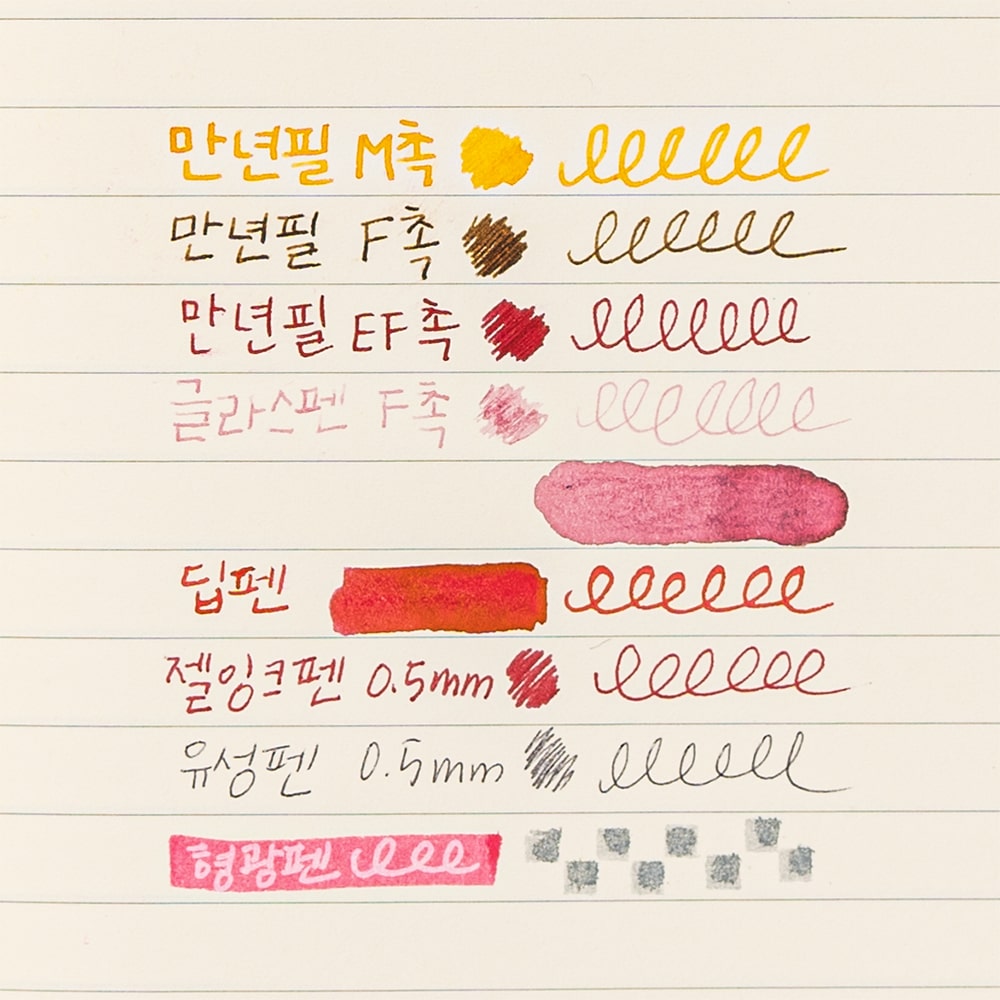 만년필 M촉
만년필 F촉
만년필 EF촉
글라스펜 F촉
딥펜
젤잉크펜 0.5mm
유성펜 0.5mm
형광펜